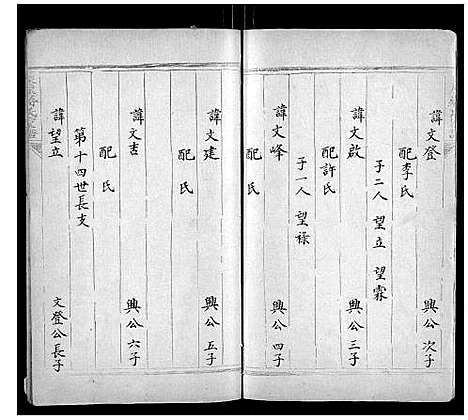 諱文登 興公次子
配李氏
子二人 望立 望霖
諱文啟 興公三子
配許氏
子一人 望祿
諱文峰 興公四子
配 氏
諱文建 興公五子
配 氏
諱文吉 興公六子
配 氏
第十四世長支
諱望立 文登公長子